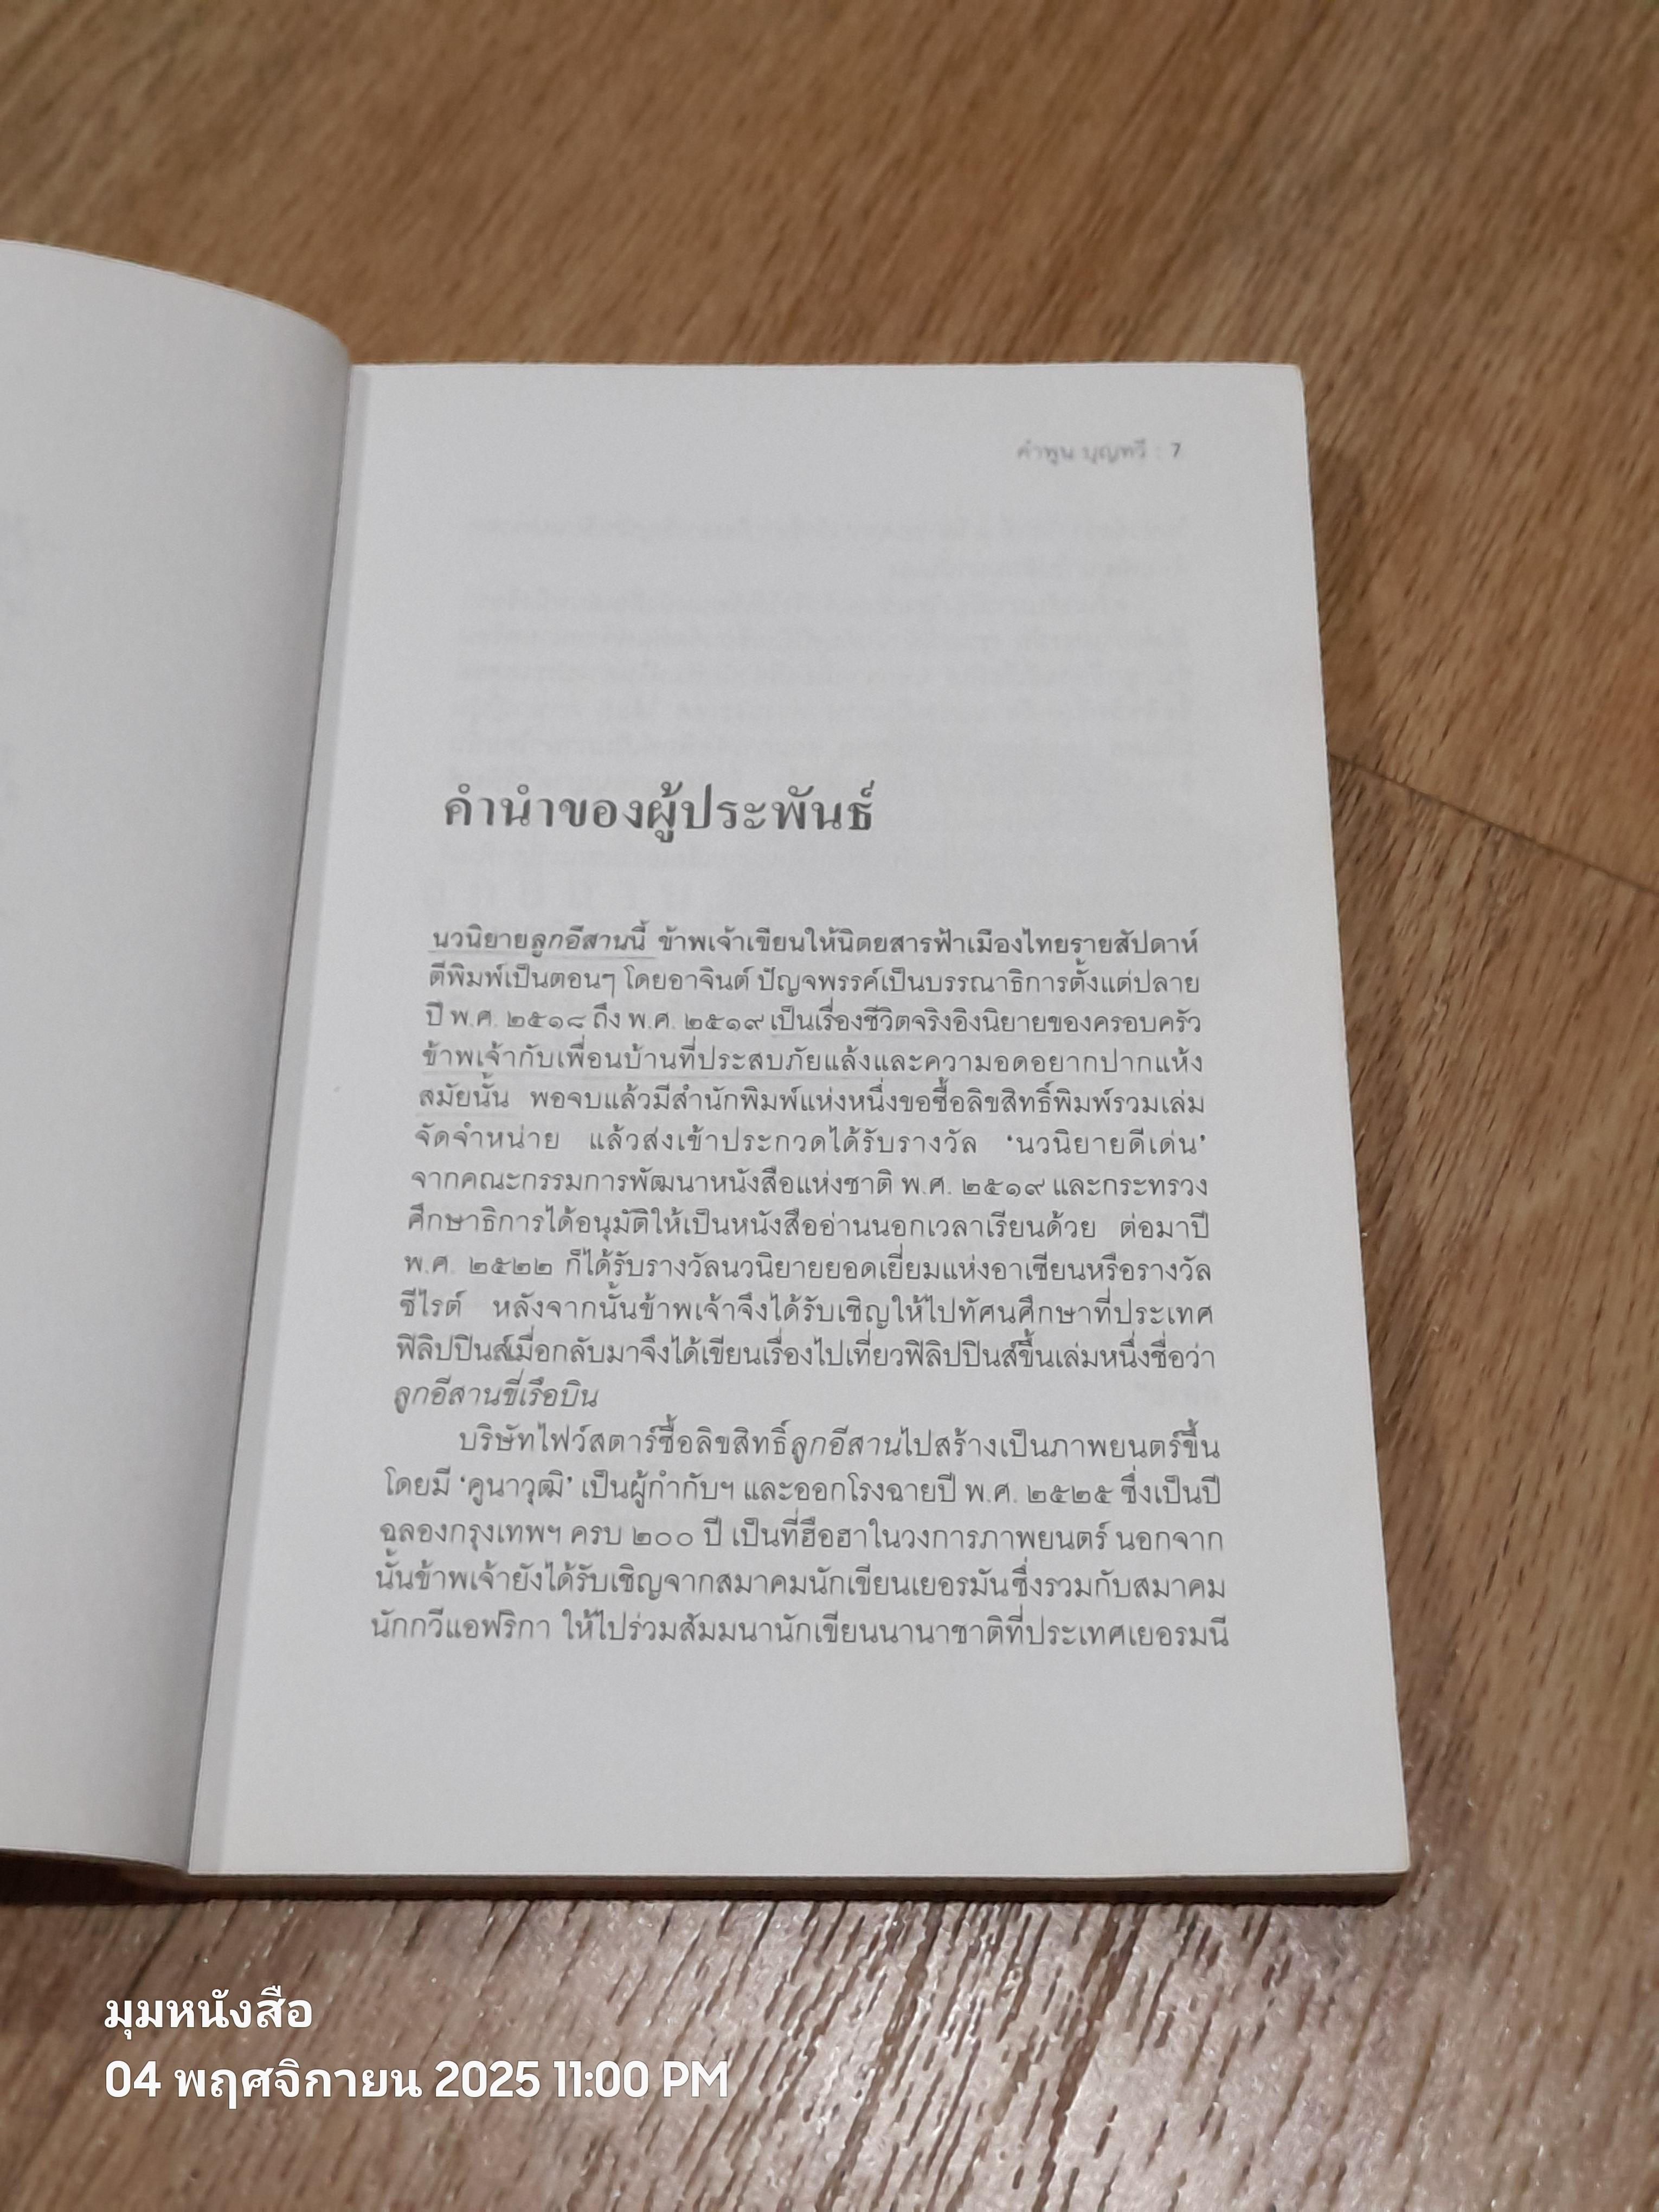 คำพูน บุญทวี : 7
คำนำของผู้ประพันธ์
นวนิยายลูกอีสานนี้ ข้าพเจ้าเขียนให้นิตยสารฟ้าเมืองไทยรายสัปดาห์
ตีพิมพ์เป็นตอนๆ โดยอาจินต์ ปัญจพรรค์เป็นบรรณาธิการตั้งแต่ปลาย
ปี พ.ศ. ๒๕๑๘ ถึง พ.ศ. ๒๕๑๙ เป็นเรื่องชีวิตจริงอิงนิยายของครอบครัว
ข้าพเจ้ากับเพื่อนบ้านที่ประสบภัยแล้งและความอดอยากปากแห้ง
สมัยนั้น พอจบแล้วมีสำนักพิมพ์แห่งหนึ่งขอซื้อลิขสิทธิ์พิมพ์รวมเล่ม
จัดจำหน่าย แล้วส่งเข้าประกวดได้รับรางวัล ‘นวนิยายดีเด่น’
จากคณะกรรมการพัฒนาหนังสือแห่งชาติ พ.ศ. ๒๕๑๙ และกระทรวง
ศึกษาธิการได้อนุมัติให้เป็นหนังสืออ่านนอกเวลาเรียนด้วย ต่อมาปี
พ.ศ. ๒๕๒๒ ก็ได้รับรางวัลนวนิยายยอดเยี่ยมแห่งอาเซียนหรือรางวัล
ซีไรต์ หลังจากนั้นข้าพเจ้าจึงได้รับเชิญให้ไปทัศนศึกษาที่ประเทศ
ฟิลิปปินส์เมื่อกลับมาจึงได้เขียนเรื่องไปเที่ยวฟิลิปปินส์ขึ้นเล่มหนึ่งชื่อว่า
ลูกอีสานขี่เรือบิน
บริษัทไฟว์สตาร์ซื้อลิขสิทธิ์ลูกอีสานไปสร้างเป็นภาพยนตร์ขึ้น
โดยมี ‘คูนาวุฒิ’ เป็นผู้กำกับฯ และออกโรงฉายปี พ.ศ. ๒๕๒๕ ซึ่งเป็นปี
ฉลองกรุงเทพฯ ครบ ๒๐๐ ปี เป็นที่ฮือฮาในวงการภาพยนตร์ นอกจาก
นั้นข้าพเจ้ายังได้รับเชิญจากสมาคมนักเขียนเยอรมันซึ่งรวมกับสมาคม
นักกวีแอฟริกา ให้ไปร่วมสัมมนานักเขียนนานาชาติที่ประเทศเยอรมนี
มุมหนังสือ
04 พฤศจิกายน 2025 11:00 PM